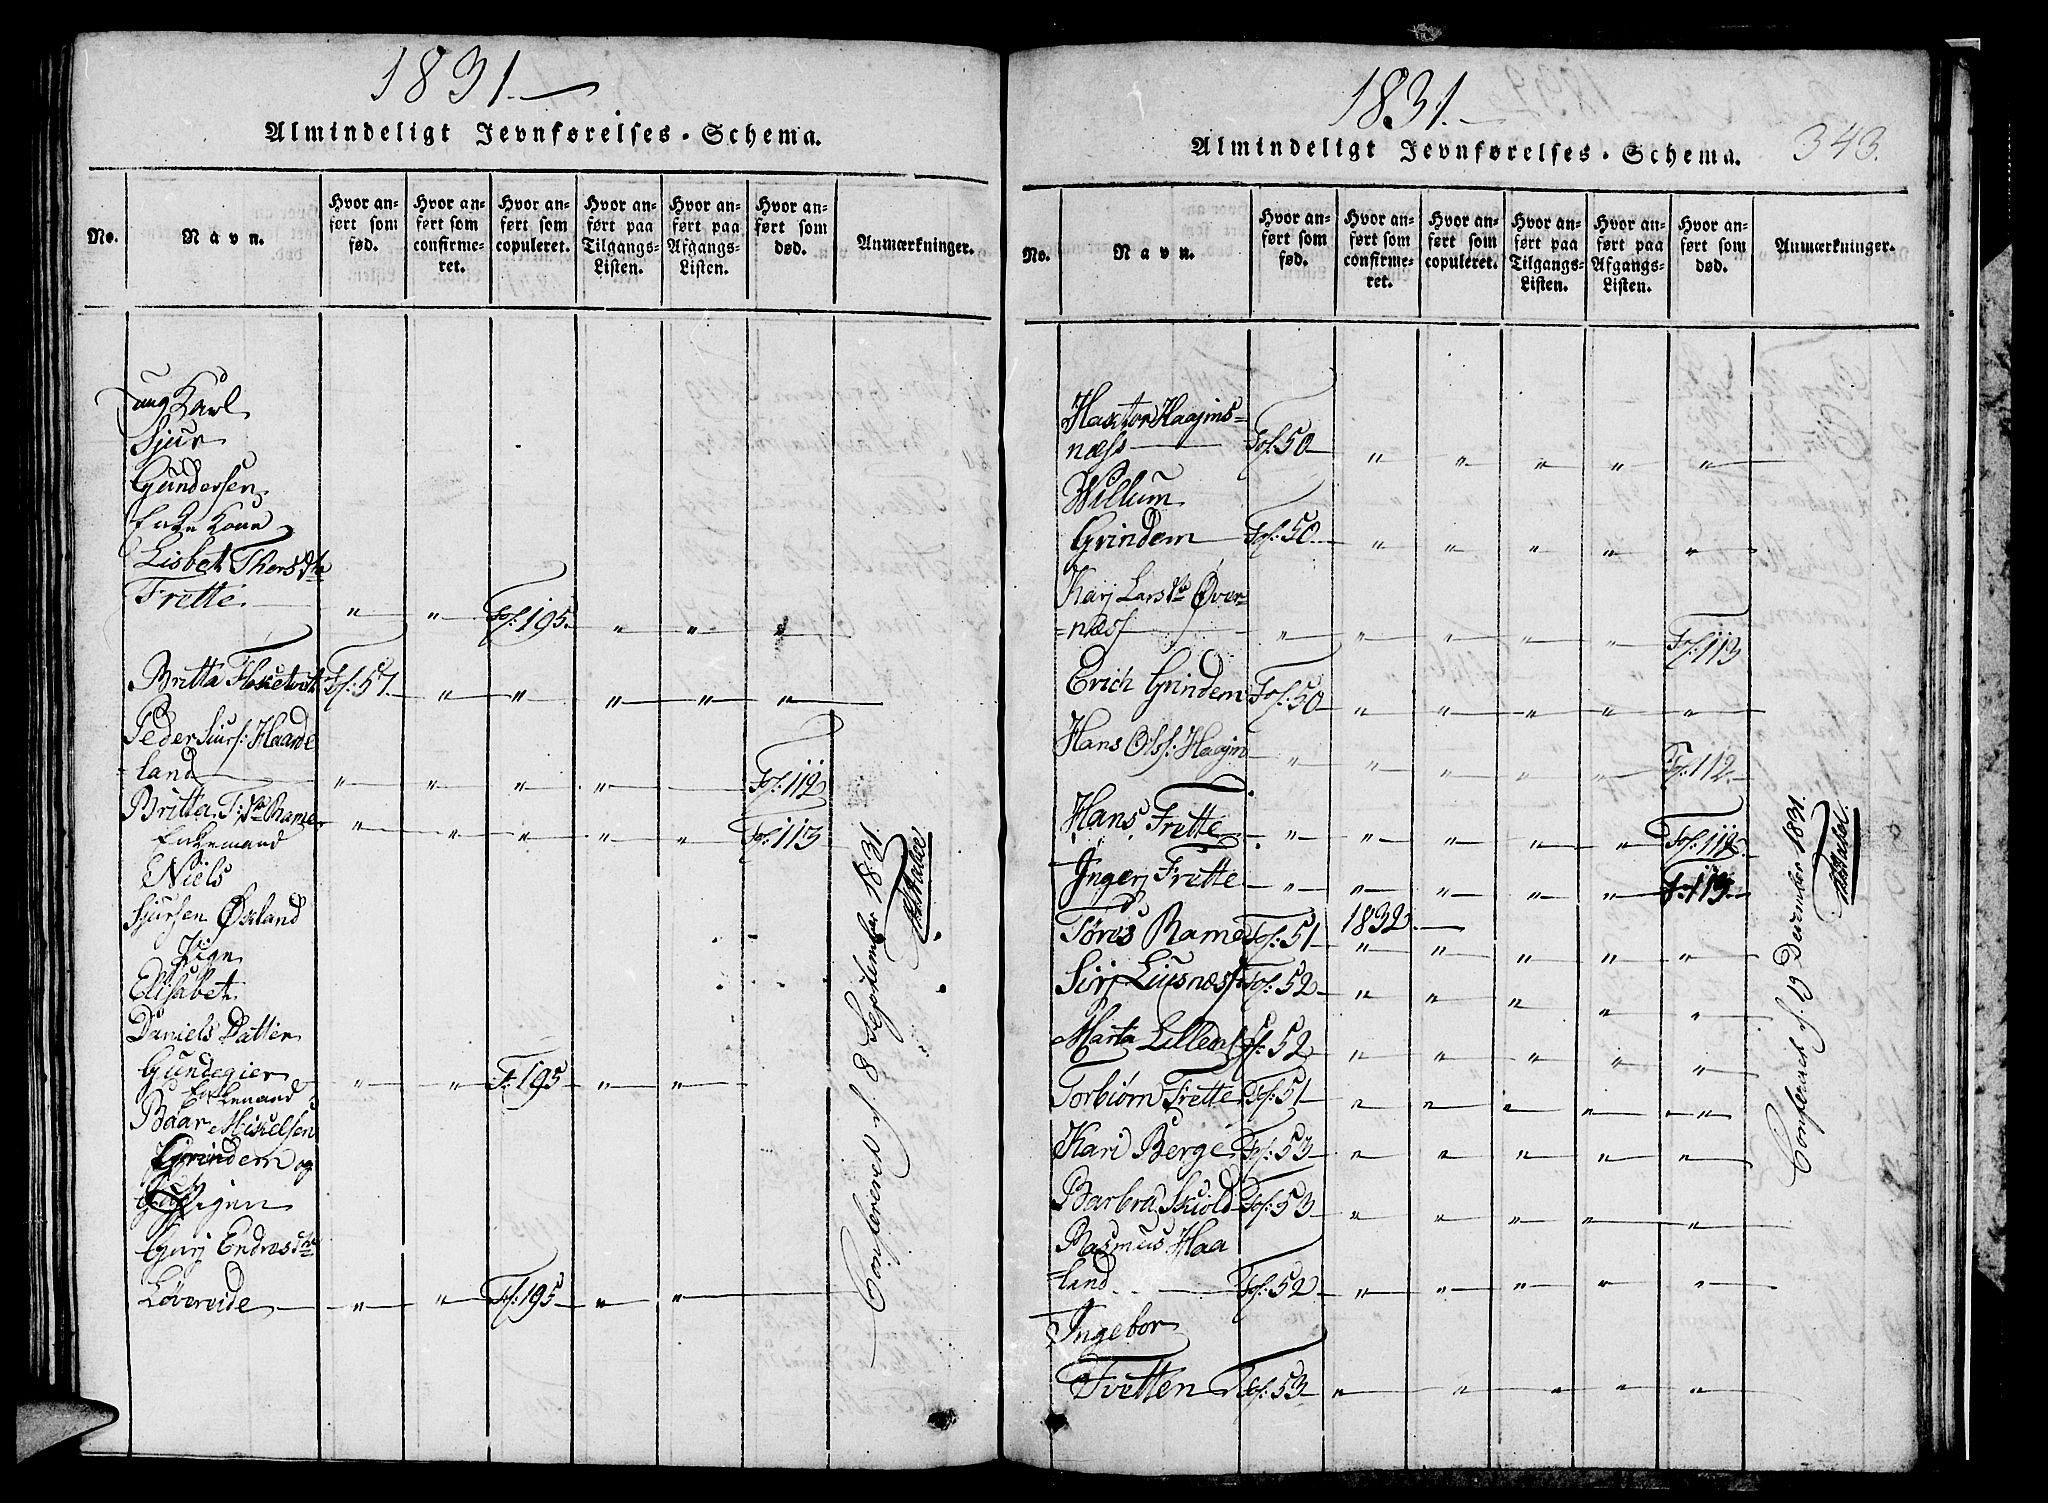 1831.
Almindeligt Jevnførelses-Schema.
No.
Navn.
Hvor anført som fød.
Hvor anført som confirmeret.
Hvor anført som copuleret.
Hvor anført paa Tilgangs-Listen.
Hvor anført paa Afgangs-Listen.
Hvor anført som død.
Anmærkninger.
ung Karl
Sjur
Gundersen
Enke Kone
Lisbet Thorsdtr
Frette. " " Fol. 195. " " "
Britta Fol: 57. " " " " "
Peder Siurs: Haande
land " " " " " Fol: 112
Britta T: Rame " " " " " Fol: 113
Enkemand
Niels
Sjursen Øxland
Pign
Elisabet
Daniels Datter
Gundegier " " F. 195 " "
Enkemand
Baar Mikelsen
Grindem og
Pigen
Gurj Endresdtr
Løvereide " " Fol: 195 " "
Confereret d. 8 September 1831.
1831.
343.
Almindeligt Jevnførelses-Schema.
No.
Navn.
Hvor anført som fød.
Hvor anført som confirmeret.
Hvor anført som copuleret.
Hvor anført paa Tilgangs-Listen.
Hvor anført paa Afgangs-Listen.
Hvor anført som død.
Anmærkninger.
Haktor Haajms-
næss Fol. 50 " " " " "
Willum
Grindem Fol. 50. " " " " "
Karj Lars Øver-
=næss " " " " " Fol: 113
Erich Grindem Fol: 50 " " " " "
Hans Olss: Haajm " " " " " Fol: 112.
Hans Frette " " " " " Fol: 112.
Ingerj Frette " " " " " F: 113.
Tøres Rame Fol: 51 1832. " " " " "
Sirj Liusnæss Fol: 52 " " " " "
Marta Lillenæs F: 52 " " " " "
Torbiørn Frette Fol: 51 " " " " "
Kari Berge Fol: 53 " " " " "
Barbra Skiold Fol: 53 " " " " "
Rasmus Haa
=land Fol: 52 " " " " "
Ingebor
Tvetten Fol: 53 " " " " "
Confereret d. 19 December 1831.